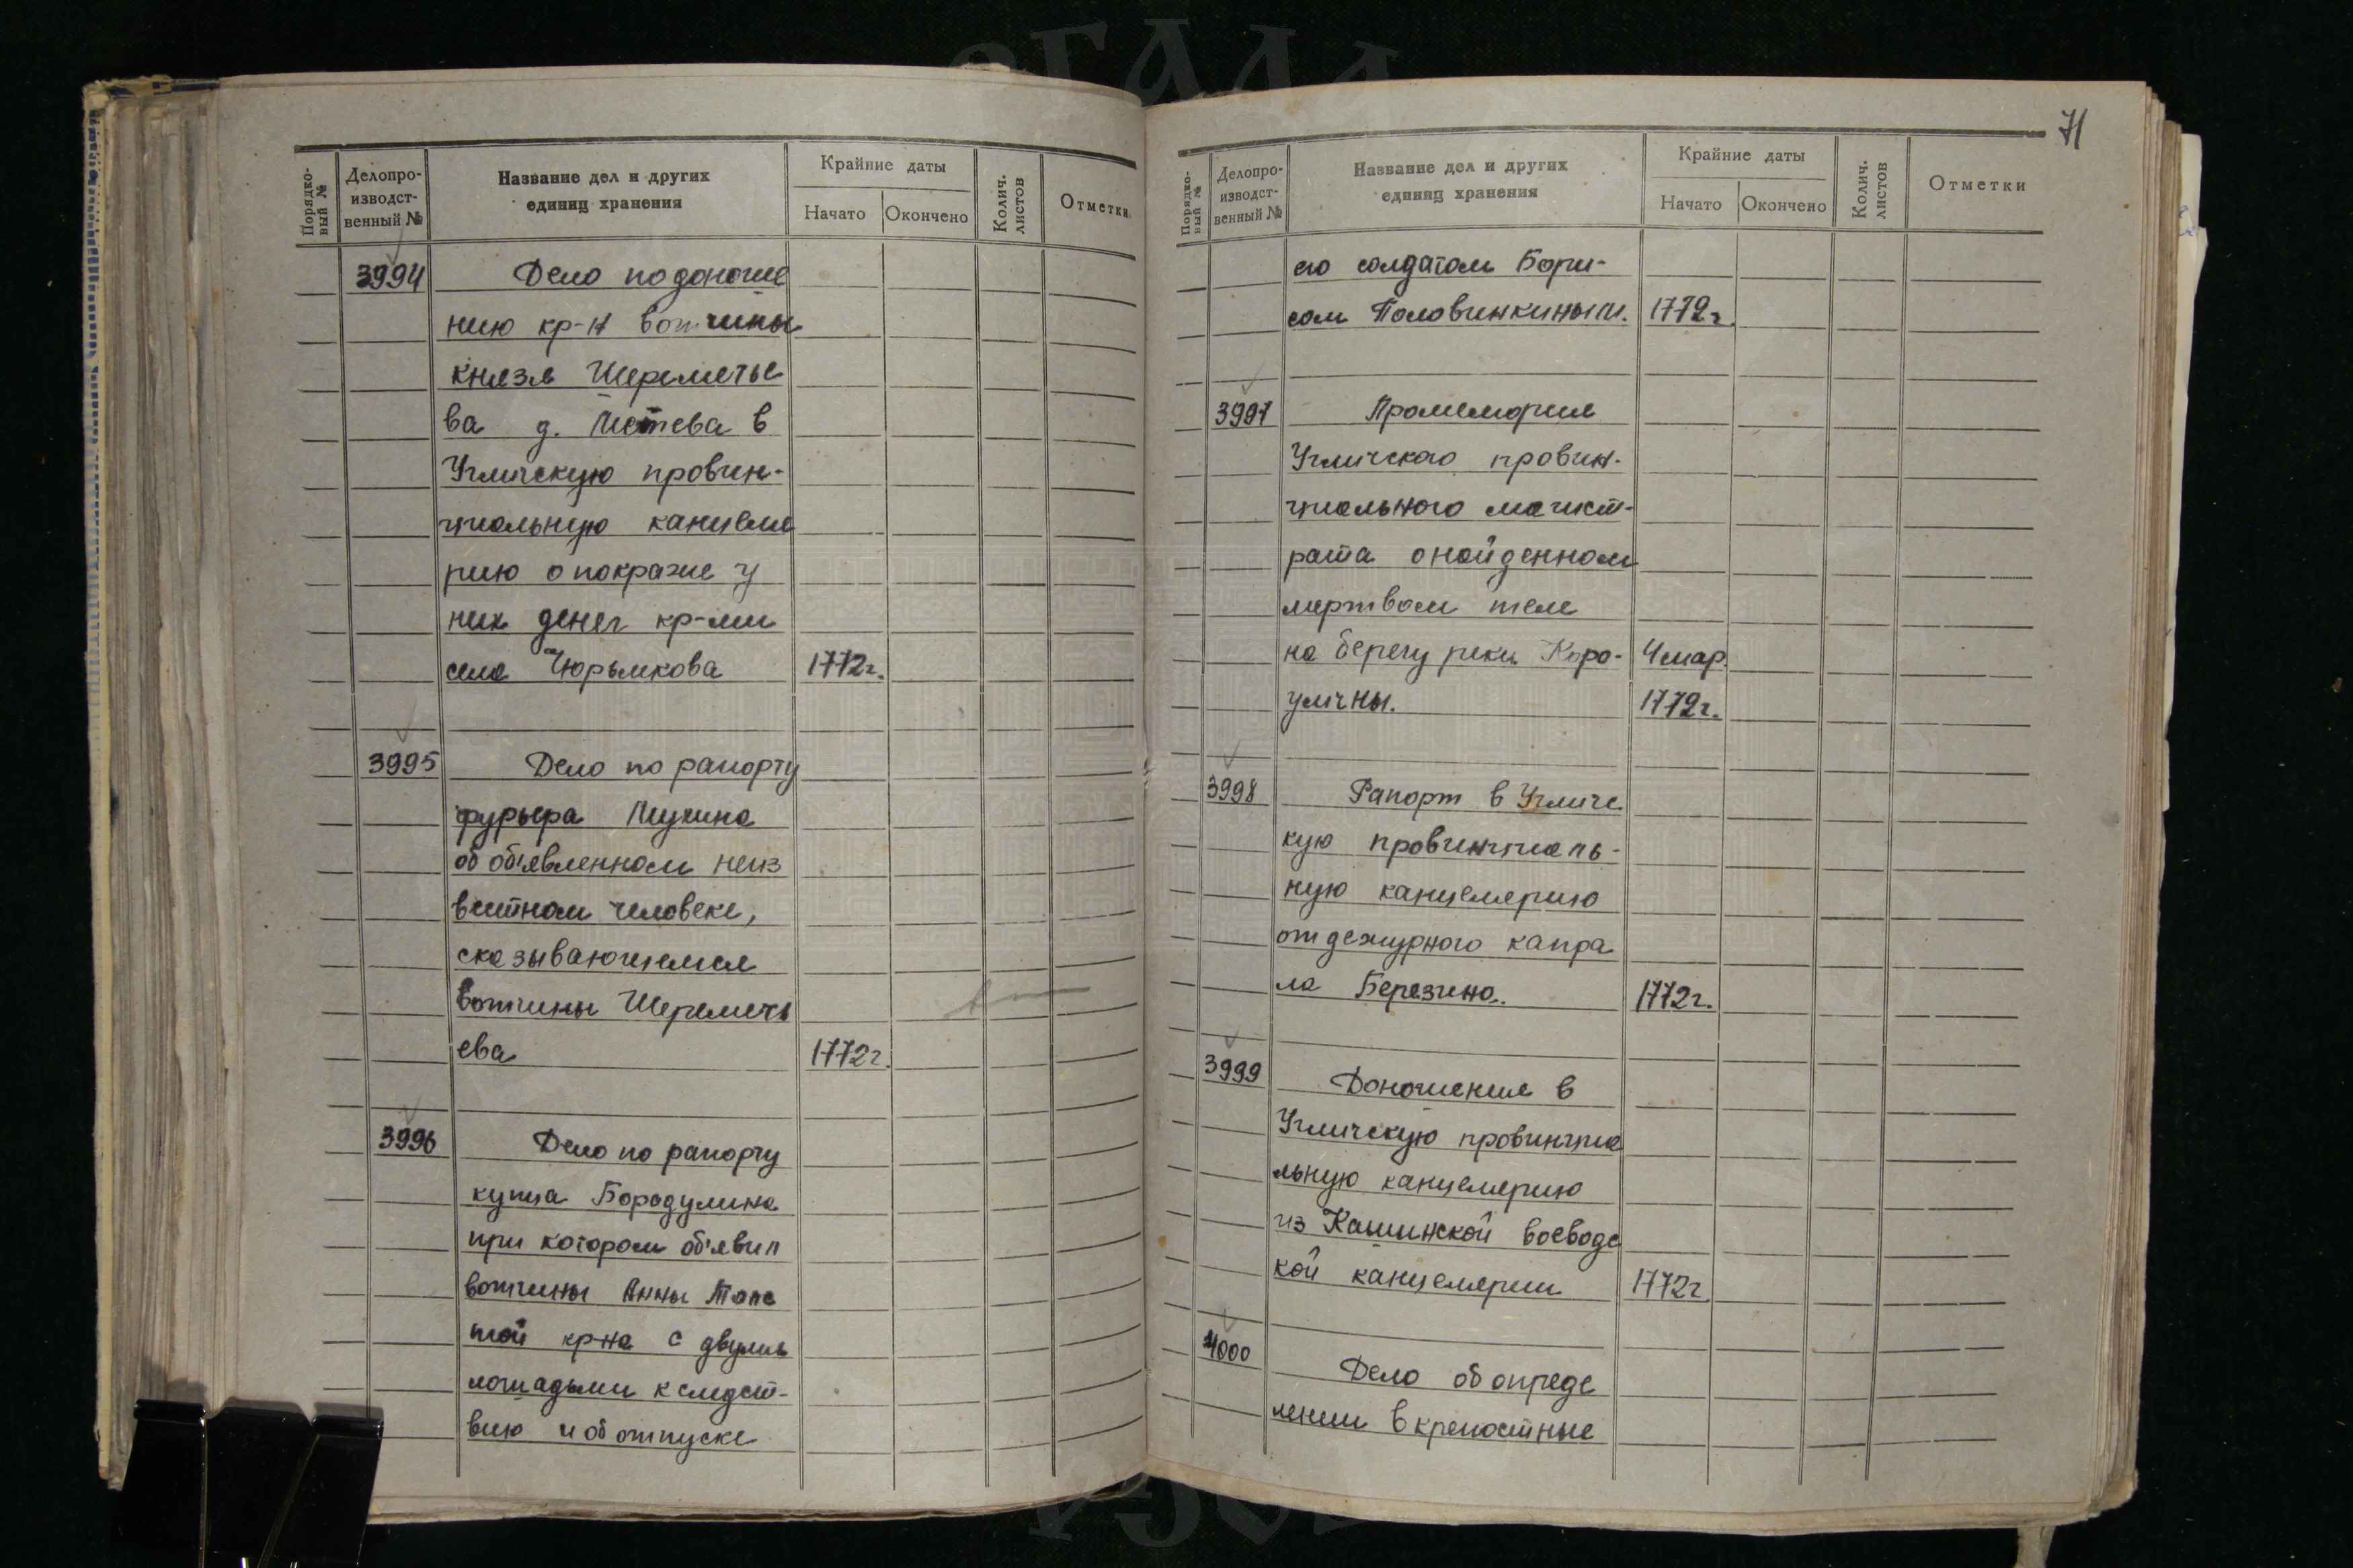 Порядко-
вый №
Делопро-
изводст-
венный №
Название дел и других
единиц хранения
Крайние даты
Начато
Окончено
Колич.
листов
Отметки
3994
Дело по доноше
нию кр-н вотчины
князя Шереметье
ва д. в
Угличскую провин-
циальную канцеля
рию о покраже у
них денег кр-ми
села Чюрьмкова
1772г.
3995
Дело по рапорту
фурьера Мухина
об об'явленном неиз
вестном человеке,
сказывающемся
вотчины Шереметь
ева
1772г.
3996
Дело по рапорту
купца Бородулина
при котором об'явил
вотчины Анны Толс
той кр-на с двумя
лошадьми к следст-
вию и об отпуске
71
Порядко-
вый №
Делопро-
изводст-
венный №
Название дел и других
единиц хранения
Крайние даты
Начато
Окончено
Колич.
листов
Отметки
его солдатом Бори-
сом Половинкиным.
1772г.
3997
Промемория
Угличского провин-
циального магист-
рата о найденном
мертвом теле
на берегу реки Коро-
4 мар.
уличны.
1772г.
3998
Рапорт в Угличс
кую провинциаль-
ную канцелярию
от дежурного капра
ла Березина.
1772г.
3999
Доношение в
Угличскую провинциа
льную канцелярию
из Кашинской воеводс
кой канцелярии
1772г.
4000
Дело об опреде
лении в крепостные